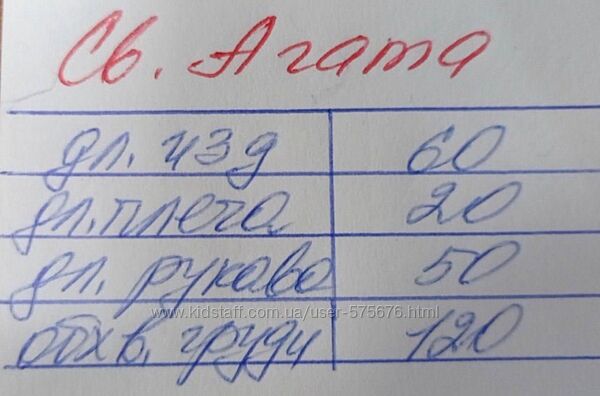 Св. Агата
дл. изд 60
дл. плеча 20
дл. рукава 50
www.kidstaff.com.ua/user-575676.html
обхв. груди 120